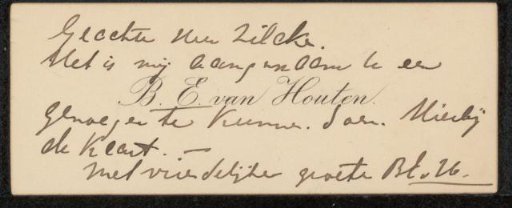 Geachte Heer Zilcke.
Het is mij aangenaam U een
B. E. van Houten.
genoegen te kunnen doen. Hierbij
de kaart. —
Met vriendelijke groete B.E.v.H.